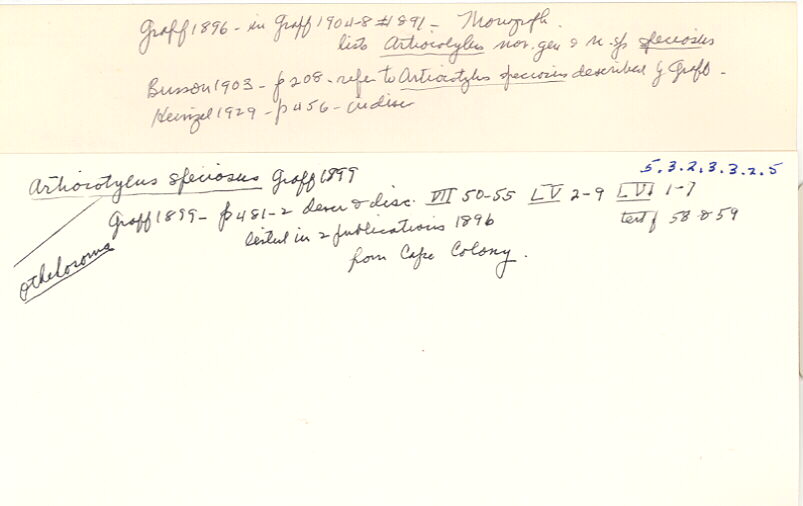 Graff 1896 - in Graff 1904-8 #1891 - Monograph.
lists Artiocotylus nov. gen & n. sp speciosus
Busson 1903 - p 208 - refer to Artiocotylus speciosus described by Graff -
Heinzel 1929 - p 456 - in disc
5.3.2.3.3.2.5
Artiocotylus speciosus Graff 1899
Graff 1899 - p 481-2 descr & disc. VII 50-55 LV 2-9 LVI 1-7
text f 58 & 59
listed in 2 publications 1896
from Cape Colony.
Othelosoma